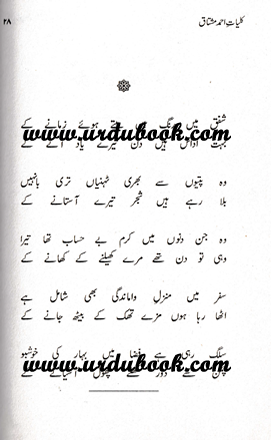 ۲۸ کلیاتِ احمد مشتاق
شفق میں رنگ ہوئے زمانے کے
www.urdubook.com
بہت اداس ہیں دن تیرے یاد آنے کے
وہ پتیوں سے بھری ٹہنیاں تری بانہیں
بلا رہے ہیں شجر تیرے آستانے کے
وہ جن دنوں میں کرم بے حساب تھا تیرا
وہی تو دن تھے مرے کھیلنے کے کھانے کے
سفر میں منزلِ واماندگی بھی شامل ہے
اٹھا رہا ہوں مزے تھک کے بیٹھ جانے کے
سلگ رہی ہے فضا میں بہار کی خوشبو
www.urdubook.com
دور کے